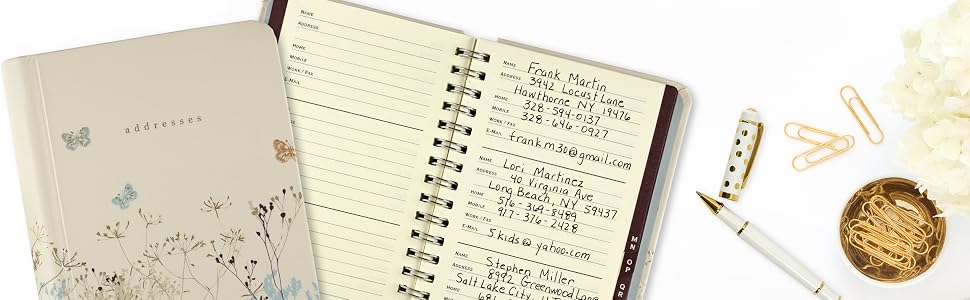 addresses
NAME
ADDRESS
HOME
MOBILE
WORK / FAX
E-MAIL
NAME Frank Martin
ADDRESS 3942 Locust Lane
Hawthorne NY 19476
HOME 328-594-0137
MOBILE 328-646-0927
WORK / FAX
E-MAIL frankm30@gmail.com
NAME Lori Martinez
ADDRESS 40 Virginia Ave
Long Beach, NY 59437
HOME 516-369-8489
MOBILE 917-376-2428
WORK / FAX
E-MAIL 5kids@yahoo.com
NAME Stephen Miller
ADDRESS 8992 Greenwood Lane
Salt Lake City,
HOME
MN
OP
QR